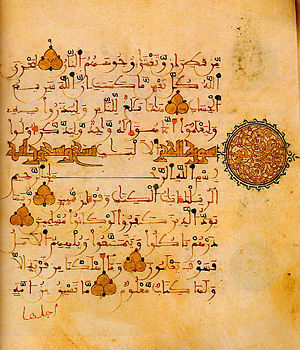 من قطران وتغشى وجوههم النار ليجزي
الله كل نفس ما كسبت إن الله سريع
الحساب هذا بلغ للناس ولينذروا به
وليعلموا أنما هو إله واحد وليذكر أولوا
الألبب
بسم الله الرحمن الرحيم
الر تلك ءايت الكتب وقرءان مبين ربما
يود الذين كفروا لو كانوا مسلمين
ذرهم يأكلوا ويتمتعوا ويلههم الأمل
فسوف يعلمون وما أهلكنا من قرية إلا
ولها كتاب معلوم ما تسبق من أمة
أجلها